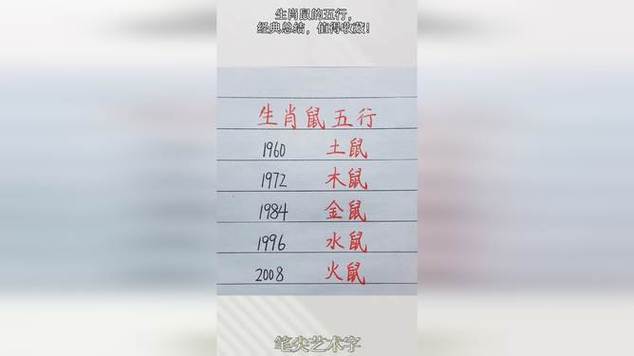 生肖鼠的五行,
经典总结，值得收藏!
生肖鼠五行
1960 土鼠
1972 木鼠
1984 金鼠
1996 水鼠
2008 火鼠
笔尖艺术字